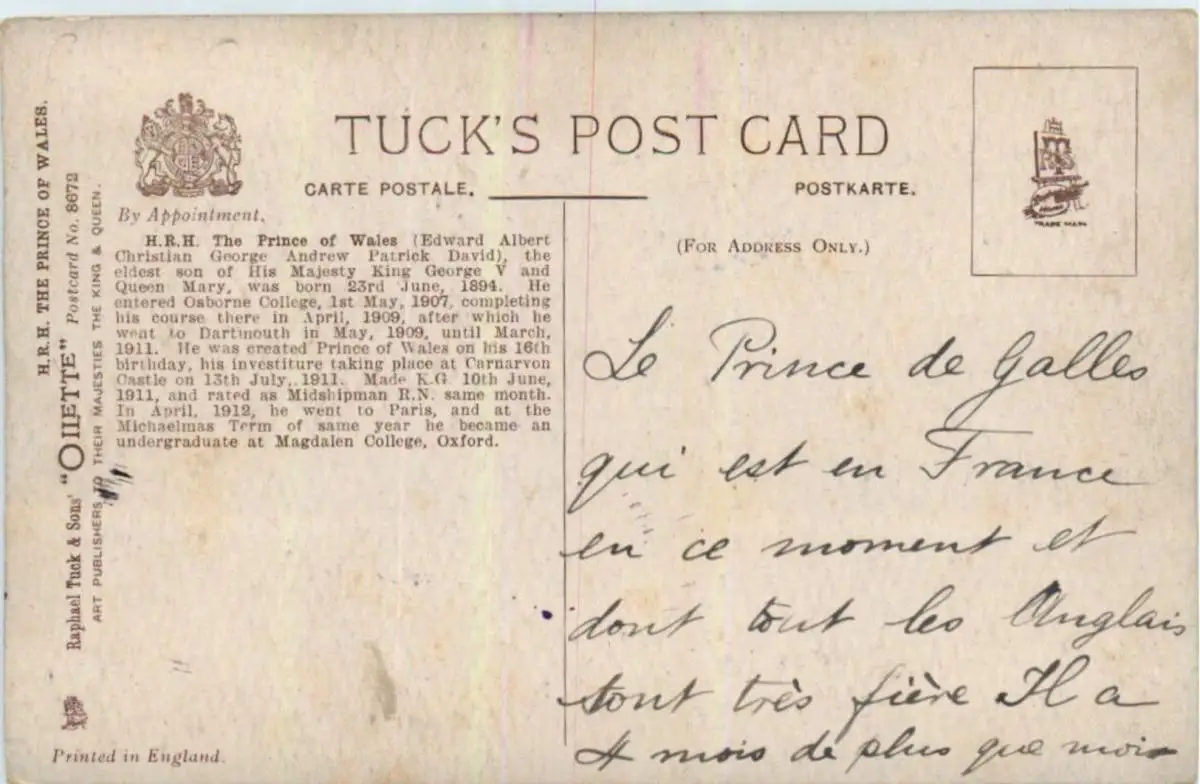 TUCK'S POST CARD
CARTE POSTALE.
POSTKARTE.
(FOR ADDRESS ONLY.)
By Appointment.
H.R.H. The Prince of Wales (Edward Albert
Christian George Andrew Patrick David), the
eldest son of His Majesty King George V and
Queen Mary, was born 23rd June, 1894. He
entered Osborne College, 1st May, 1907, completing
his course there in April, 1909, after which he
went to Dartmouth in May, 1909, until March,
1911. He was created Prince of Wales on his 16th
birthday, his investiture taking place at Carnarvon
Castle on 13th July, 1911. Made K.G. 10th June,
1911, and rated as Midshipman R.N. same month.
In April, 1912, he went to Paris, and at the
Michaelmas Term of same year he became an
undergraduate at Magdalen College, Oxford.
H.R.H. THE PRINCE OF WALES.
Raphael Tuck & Sons' "OILETTE" Postcard No. 8672
ART PUBLISHERS TO THEIR MAJESTIES THE KING & QUEEN.
Printed in England.
TRADE MARK
Le Prince de Galles
qui est en France
en ce moment et
dont tout les Anglais
sont très fière Il a
4 mois de plus que moi